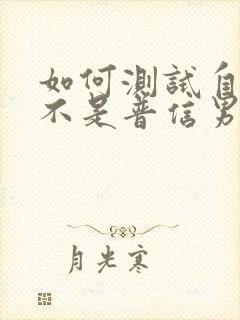 如何測試自
不是普信男
月光寒